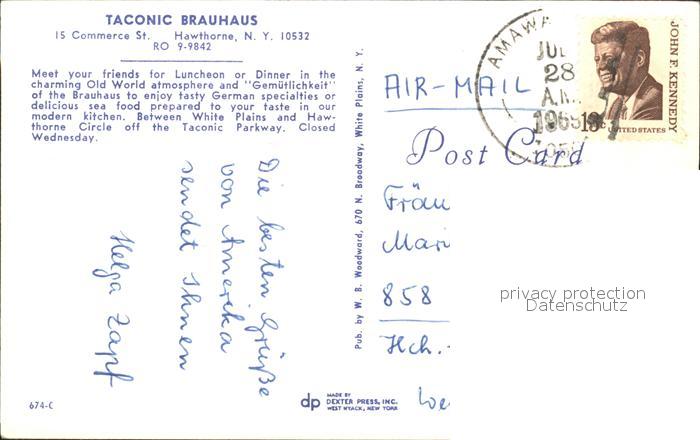 TACONIC BRAUHAUS
15 Commerce St. Hawthorne, N. Y. 10532
RO 9-9842
Meet your friends for Luncheon or Dinner in the
charming Old World atmosphere and "Gemütlichkeit"
of the Brauhaus to enjoy tasty German specialties or
delicious sea food prepared to your taste in our
modern kitchen. Between White Plains and Haw-
thorne Circle off the Taconic Parkway. Closed
Wednesday.
Die besten Grüße
von Amerika
sendet Ihnen
Helga Zapf
674-C
Pub. by W. B. Woodward, 670 N. Broadway, White Plains, N. Y.
dp MADE BY
DEXTER PRESS, INC.
WEST NYACK, NEW YORK
AIR-MAIL
Post Card
AMAWA
JUL
28
A.M.
JOHN F. KENNEDY
13c UNITED STATES
Fräu
Mari
858
Hch.
We
privacy protection
Datenschutz